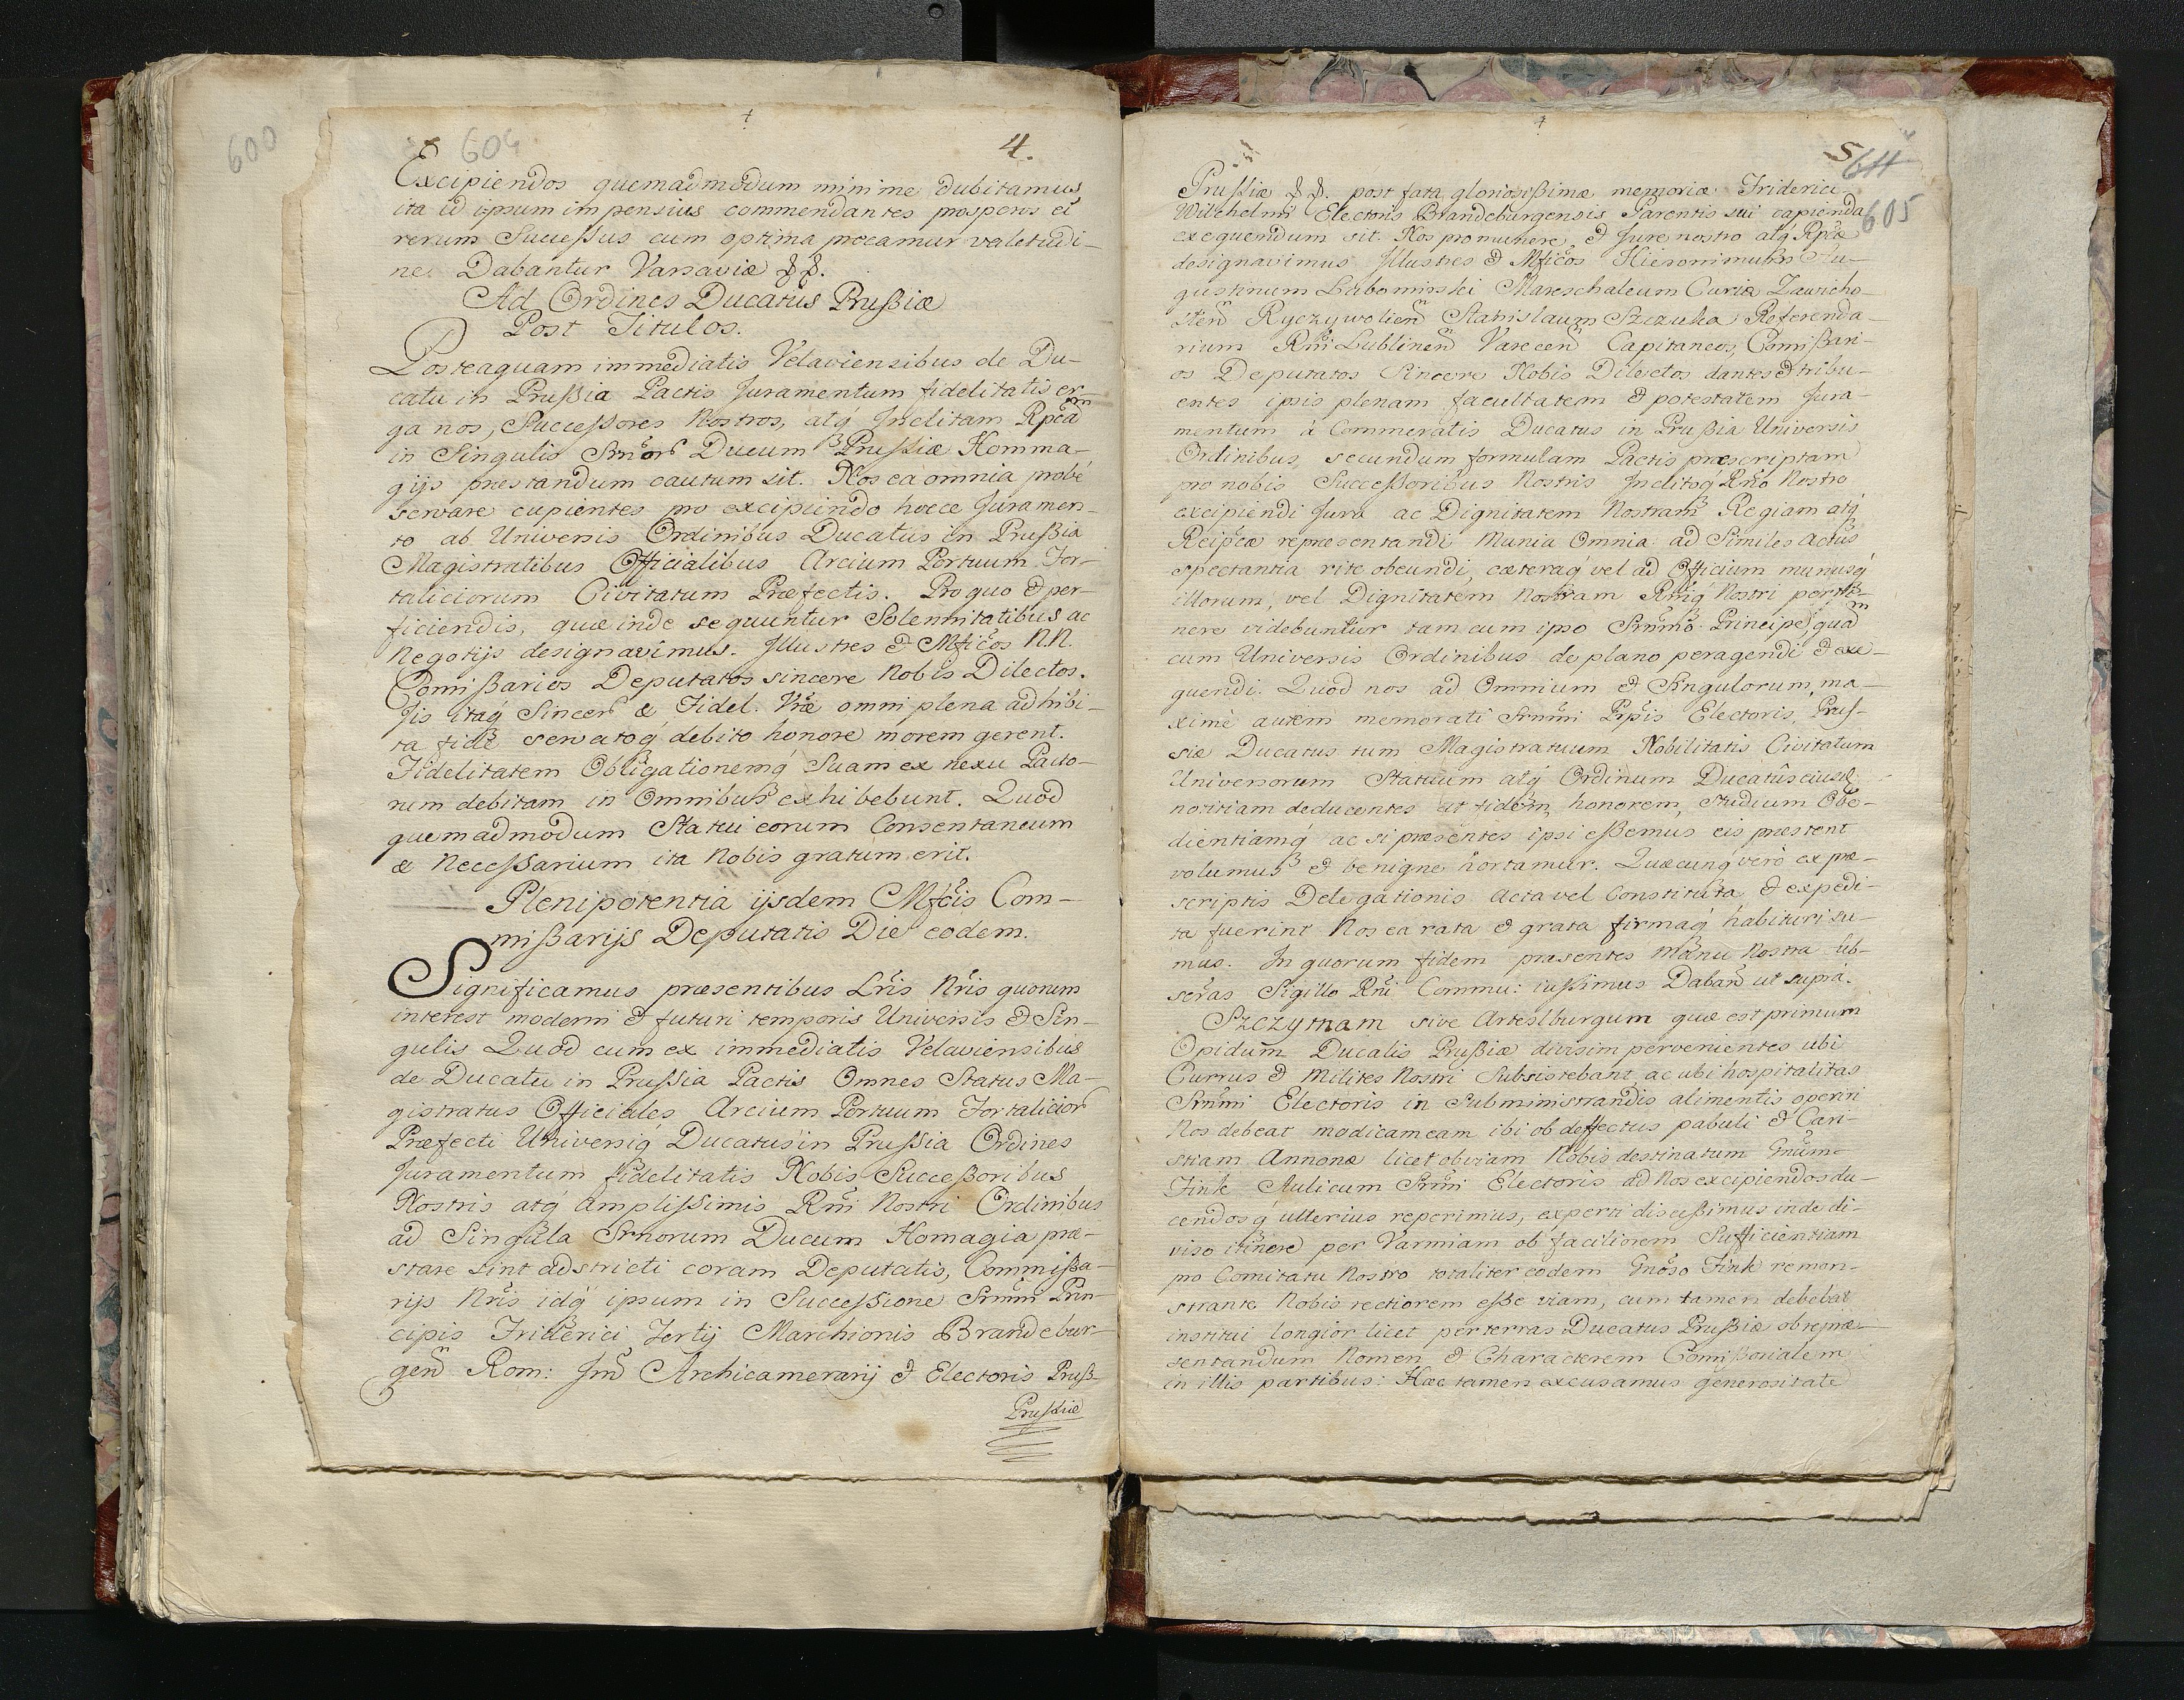 600
604
4.
Excipiendos quemadmodum minime dubitamus
ita id ipsum impensius commendantes prosperos et
rerum Sucessus cum optima precamur valetudi-
ne. Dabantur Varsaviæ &&.
Ad Ordines Ducatus Prußiæ
Post Titulos.
Posteaquam immediatis Velaviensibus de Du-
catu in Prußia Pactis Juramentum fidelitatis er-
ga nos, Successores Nostros, atq́ Inclitam Rpcam
in Singulis Srnor Ducum Prussiæ Homma-
gijs præstandum cautum sit. Nos ea omnia probe
servare cupientes pro excipiendo hocce Juramen-
to ab Universis Ordinibus Ducatus in Prußia
Magistratibus Officialibus Arcium Portuum For-
taliciorum Civitatum Præfectis. Pro quo & per-
ficiendis, quæ inde sequuntur Solennitatibus ac
Negotijs designavimus. Illustres & Mficos N.N.
Comißarios Deputatos sincere Nobis Dilectos.
Jis itaq́ Sincer & Fidel. Vræ omni plena adhibi-
ta fide servatoq́ debito honore morem gerent.
Fidelitatem Obligationemq́ Suam ex nexu Pacto-
rum debitam in Omnibus exhibebunt. Quod
quemadmodum Statui eorum Consentaneum
& Necessarium ita Nobis gratum erit.
Plenipotentia ijsdem Mfcis Com-
mißarijs Deputatis Die eodem.
Significamus præsentibus Lris Nris quorum
interest moderni & futuri temporis Universis & Sin-
gulis Quod cum ex immediatis Velaviensibus
de Ducatu in Prussia Pactis Omnes Status Ma-
gistratus Officiales Arcium Portuum Fortalicior
Præfecti Universiq́ Ducatus in Prussia Ordines
Juramentum fidelitatis Nobis Succeßoribus
Nostris atq́ Amplissimis Rni Nostri Ordinibus
ad Singula Srnorum Ducum Homagia præ-
stare sint adstricti coram Deputatis, Commißa-
rijs Nris idq́ ipsum in Succeßione Srnmi Prin-
cipis Friderici Tertij Marchionis Brandebur-
gen Rom: Im Archicamerarij & Electoris Pruß-
Prussiæ
5
611
605
Prussiæ &&. post fata gloriosißimæ memoriæ Friderici
Wilchelmi Electoris Brandeburgensis Parentis sui capienda
exequendum sit. Nos pro munere & Jure nostro atq́ Rpcæ
designavimus Illustres & Mficos Hieronimum Au-
gustinum Lubomirski Mareschalcum Curiæ Zawicho-
sten Ryczywolien Stanislaum Szczuka Referenda-
rium Rni Lublinen Varecen Capitaneos, Comißari-
os Deputatos Sincere Nobis Dilectos dantes & tribu-
entes ipsis plenam facultatem & potestatem Jura-
mentum à Commeratis Ducatus in Prußia Universis
Ordinibus, secundum formulam Pactis præscriptam
pro nobis Successoribus Nostris Inclitoq́ Rno Nostro
excipiendi Jura ac Dignitatem Nostram Regiam atq́
Reipcæ repræsentandi Munia Omnia ad Similes actus
spectantia rite obeundi, cæteraq́ vel ad Officium munusq́
illorum, vel Dignitatem Nostram Rniq́ Nostri perti-
nere videbuntur tam cum ipso Srnmo Principe, quam
cum Universis Ordinibus de plano peragendi & exe-
quendi. Quod nos ad Omnium & Singulorum, ma-
ximè autem memorati Srnmi Prpis Electoris, Prus-
siæ Ducatus tum Magistratuum Nobilitatis Civitatum
Universorum Statuum atq́ Ordinum Ducatus eiusd
notitiam deducentes ut fidem, honorem, studium Obe-
dientiamq́ ac si præsentes ipsi eßemus eis præstent
volumus & benigne hortamur. Quæcunq́ verò ex præ-
scriptis Delegationis acta vel Constituta & expedi-
ta fuerint Nos ea rata & grata firmaq́ habituri su-
mus. In quorum fidem præsentes Manu Nostra sub-
scras Sigillo Rni Commu: iussimus Daban ut supra.
Szczytnam sive Artelsburgum quæ est primum
Opidum Ducalis Prußiæ divisim pervenientes ubi
Currus & Milites Nostri Subsistebant, ac ubi hospitalitas
Srnmi Electoris in Subministrandis alimentis operiri
Nos debeat modicam eam ibi ob deffectus pabuli & Cari-
stiam Annonæ licet obviam Nobis destinatum Gnum
Fink Aulicum Srnmi Electoris ad Nos excipiendos du-
cendosq́ ulterius reperimus, experti disceßimus inde di-
viso itinere per Varmiam ob faciliorem Sufficientiam
pro Comitatu Nostro totaliter eodem Gnoso Fink remon-
strante Nobis rectiorem eße viam, cum tamen debebat
institui longior licet per terras Ducatus Prußiæ ob repræ-
sentandum Nomen & Characterem Comißorialem
in illis partibus: Hæc tamen excusamus generositate